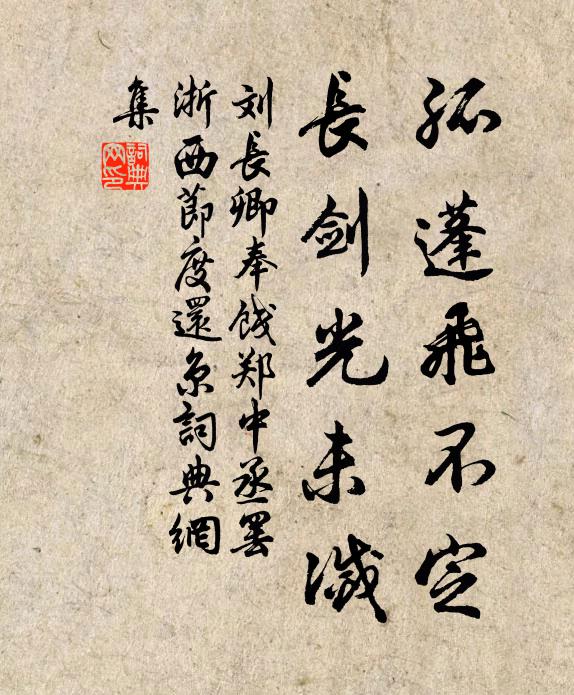 孤蓬飛不定
長劍光未滅
刘長卿奉餞郑中丞罢
浙西節度還京詞典網
集
詞典
网印